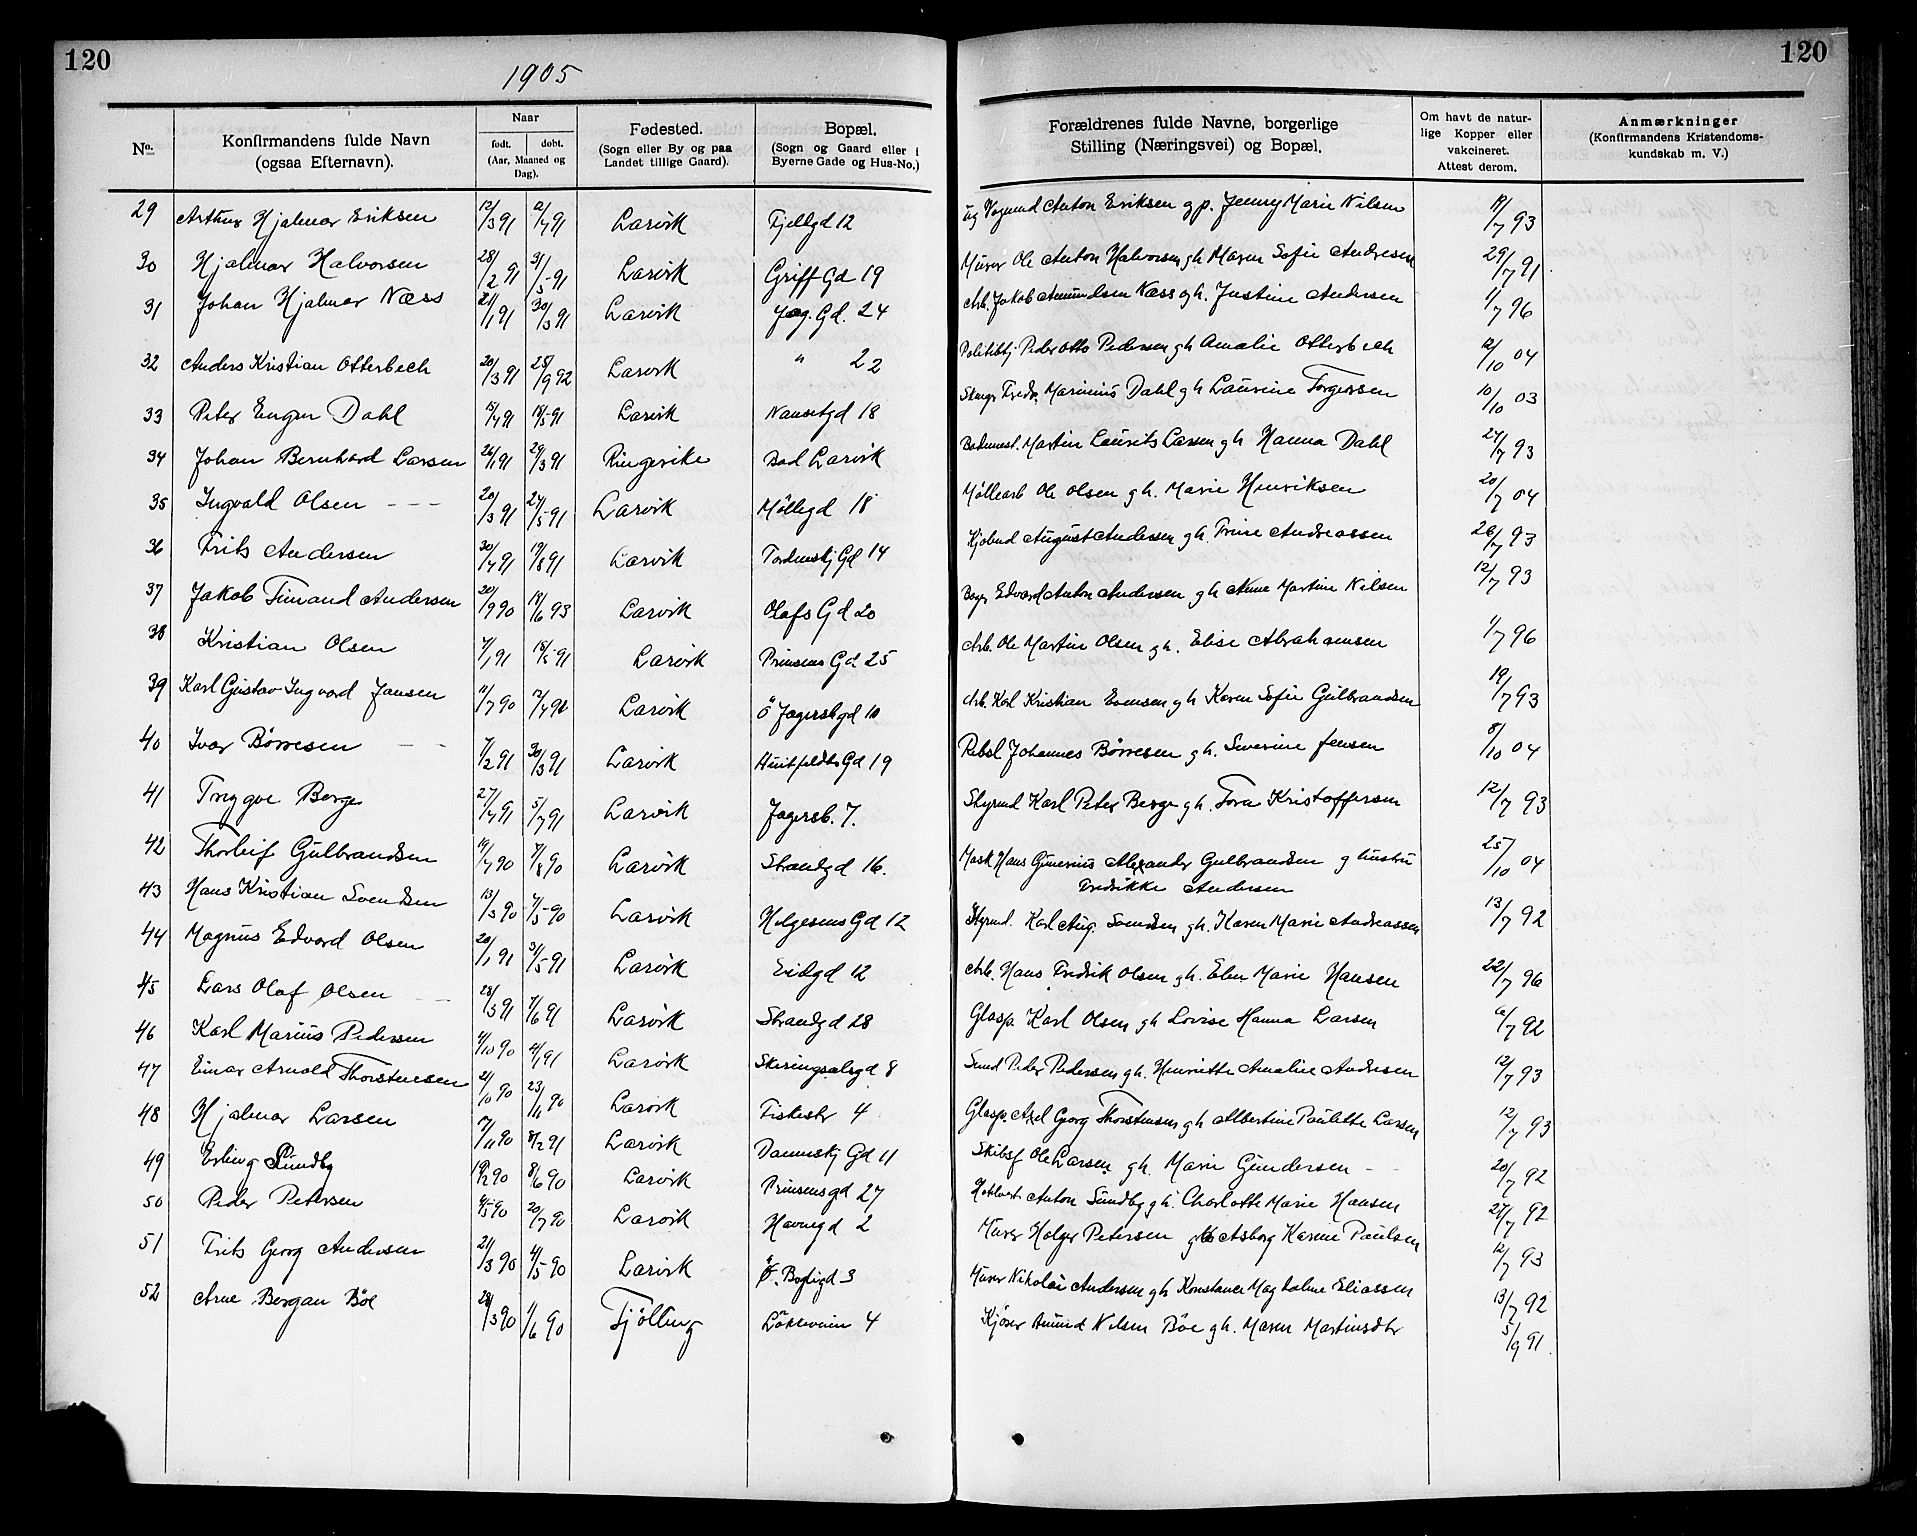 120
120
1905
No. | Konfirmandens fulde Navn (ogsaa Efternavn). | Naar født. | døbt. (Aar, Maaned og Dag). | Fødested. (Sogn eller By og paa Landet tillige Gaard). | Bopæl. (Sogn og Gaard eller i Byerne Gade og Hus-No.) | Forældrenes fulde Navne, borgerlige Stilling (Næringsvei) og Bopæl. | Om havt de naturlige Kopper eller vakcineret. Attest derom. | Anmærkninger (Konfirmandens Kristendomskundskab m. V.)
29 Arthur Hjalmar Eriksen 12/3 91 12/7 91 Larvik Fjellgd 12 Anton Eriksen og p. Jenny Marie Nilsen 19/7 93
30 Hjalmar Halvorsen 28/2 91 31/5 91 Larvik Griff Gd 19 Murer Ole Anton Halvorsen g h. Maren Sofie Andresen 29/7 91
31 Johan Hjalmar Næss 21/1 91 30/3 91 Larvik Jeg. Gd. 24 Arb. Jakob Amundsen Næss og h. Justine Andersen 1/7 96
32 Anders Kristian Otterbech 20/3 91 25/9 92 Larvik " 22 Politibtj. Peder Otto Pedersen g h Amalie Otterbech 12/10 04
33 Peter Eugen Dahl 15/4 91 18/5 91 Larvik Nansetgd 18 Marinius Dahl g h Laurine Torgersen 10/10 03
34 Johan Bernhard Larsen 26/1 91 29/3 91 Ringerike Bad Larvik Bademest. Martin Laurits Larsen g h Hanna Dahl 27/7 93
35 Ingvald Olsen - - - 20/3 91 24/5 91 Larvik Møllegd 18 Møllearb Ole Olsen g h. Marie Henriksen 20/7 04
36 Frits Andersen 30/4 91 19/8 91 Larvik Tordenskj Gd 14 Kjøbmd August Andersen g h. Trine Andreassen 26/7 93
37 Jakob Timand Andersen 20/9 90 18/6 93 Larvik Olafs Gd 20 Edvard Anton Andersen g h Anne Martine Nilsen 12/7 93
38 Kristian Olsen 7/1 91 18/5 91 Larvik Prinsens Gd 25 Arb. Ole Martin Olsen g h. Elise Abrahamsen 1/7 96
39 Karl Gustav Ingvard Jansen 11/7 90 Larvik Ö Jagersbgd 10 Arb. Karl Kristian g h Karen Sofie Gulbrandsen 19/7 93
40 Ivar Börresen - - 7/2 91 30/3 91 Larvik Huitfeldts Gd 19 Rebsl Johannes Börresen g h. Severine Jensen 8/10 04
41 Trygve Berge 27/4 91 5/7 91 Larvik Jagersb. 7. Styrmd Karl Peter Berge g h. Tora Kristoffersen 12/7 93
42 Thorleif Gulbrandsen 19/7 90 Larvik Strandgd 16. Mask Hans Gunerius Alexander Gulbrandsen g hustru 25/10 04
Fredrikke Andersen
43 Hans Kristian Svendsen 13/3 90 4/5 90 Larvik Helgesens Gd 12 Styrmd. Karl Aug. Svendsen g h. Karen Marie Andreassen 13/7 92
44 Magnus Edvard Olsen 20/1 91 31/5 91 Larvik Eidgd 12 Arb. Hans Fredrik Olsen g h. Elen Marie Hansen 22/7 96
45 Lars Olaf Olsen - - 28/3 91 7/6 91 Larvik Strandgd 28 Glasp. Karl Olsen g h Lovise Hanna Larsen 12/7 92
46 Karl Marius Pedersen 4/10 90 4/1 91 Larvik Skiringsalsgd 8 Smed Peder Pedersen g h. Henriette Amalie Andresen 12/7 93
47 Einar Arnold Thorstensen 21/10 90 23/11 90 Larvik Fiskestr 4 Glasp. Axel Georg Thorstensen g h Albertine Paulette Larsen 12/7 93
48 Hjalmar Larsen 7/11 90 8/2 91 Larvik Dannskj Gd 11 Skibsf Ole Larsen g h. Marie Gundersen - - 20/7 92
49 Erling Sundby 19/2 90 8/6 90 Larvik Prinsensgd 27 Anton Sundby g h. Charlotte Marie Hansen 27/7 92
50 Peder Petersen 4/5 90 20/7 90 Larvik Havnegd 2 Murer Holger Petersen g h Asborg Karine Paulsen 12/7 93
51 Frits Georg Andersen 21/3 90 4/5 90 Larvik Ö. Bøgligd 3 Murer Nikolai Andersen g h Konstance Magdalene Eliassen 13/7 92
52 Arne Bergan Böe 28/3 90 1/6 90 Tjölling Lökkeveien 4 Kjører Amund Nilsen Böe g h. Maren Martinsdtr 5/9 91